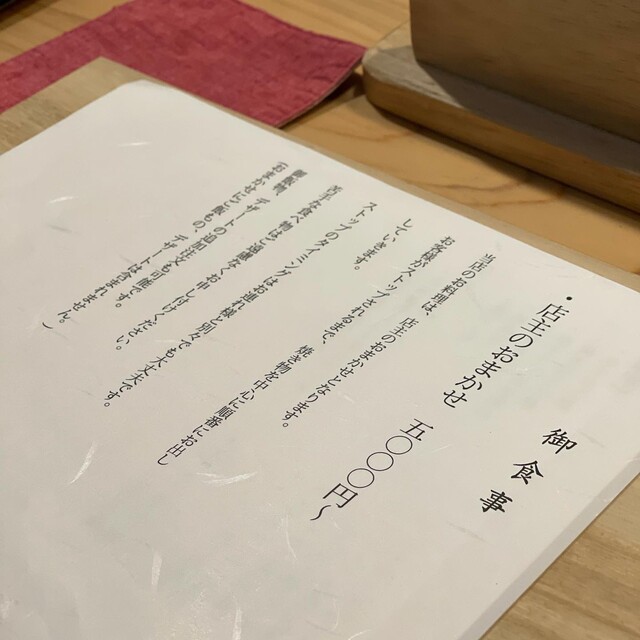 御食事
・店主のおまかせ 五〇〇〇円〜
当店のお料理は、店主のおまかせとなります。
お客様がストップされるまで、焼き物を中心に順番にお出し
していきます。
ストップのタイミングはお連れ様と別々でも大丈夫です。
苦手な食べ物はご遠慮なくお申し付けください。
御飯物、デザートの追加注文も可能です。
（おまかせにはご飯もの、デザートは含まれません。）